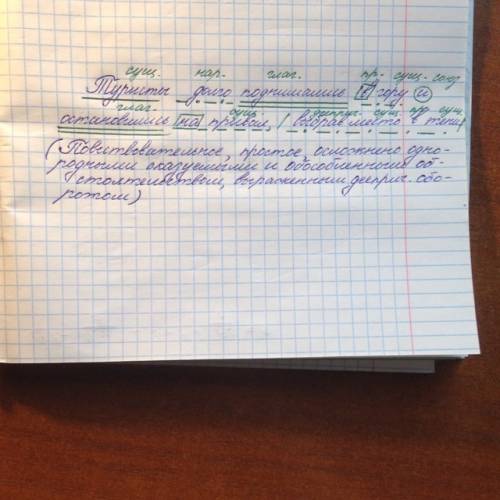 сущ. нар. глаг. пр. сущ. союз
Туристы долго поднимались в гору и
глаг. сущ. дееприч. сущ. пр. сущ.
остановились на привале, выбрав место в тени
(Повествовательное, простое, осложнено одно-
родными сказуемыми и обособленным об-
стоятельством, выраженным дееприч. обо-
ротом)